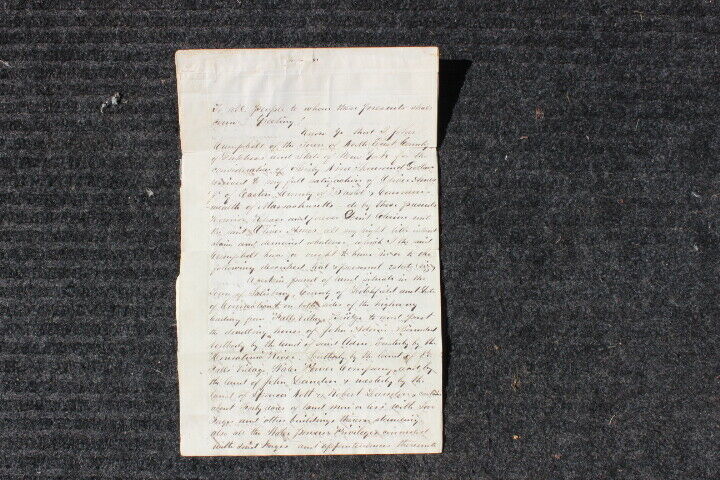 To all People to whom these Presents shall
come Greeting!
Know Ye that I John
Campbell of the town of North East County
of Dutchess and State of New York for the
consideration of Thirty Nine Thousand Dollars
received to my full satisfaction of Oliver Ames
of Easton County of Bristol & Common
wealth of Massachusetts do by these presents
remise release and forever Quit Claim unto
the said Oliver Ames all my right title interest
claim and demand whatever which I the said
Campbell have or ought to have in or to the
following described real & personal estate viz
A certain parcel of land situate in the
town of Salisbury County of Litchfield and State
of Connecticut on both sides of the highway
leading from Falls Village Bridge to and past
the dwelling house of John Adam & bounded
northerly by the land of said Adam Easterly by the
Housatonic River Southerly by the land of the
Falls Village Water Power Company and by
the land of John & westerly by the
land of & Robert
about Forty acres of land more or less with
Forge and other buildings thereon standing
also all the Water Power & Privileges connected
with said Forges and appurtenances thereunto